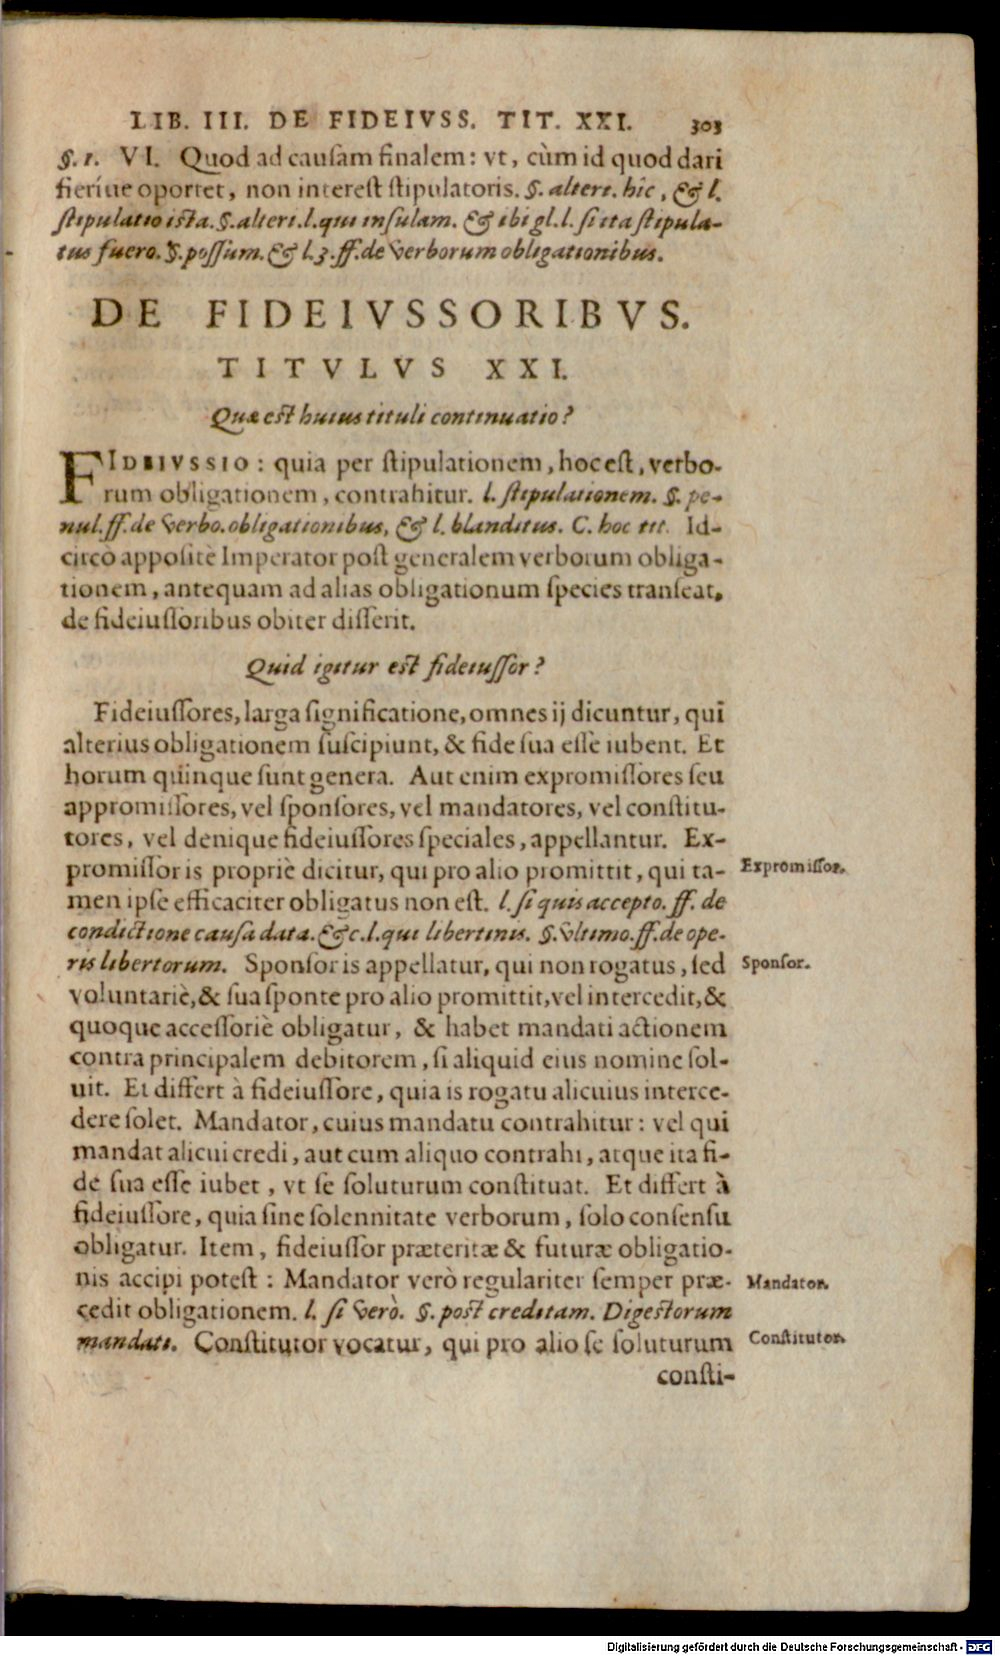 LIB. III. DE FIDEIVSS. TIT. XXI. 303
§. 1. VI. Quod ad causam finalem: vt, cùm id quod dari
fieríue oportet, non interest stipulatoris. §. alteri. hîc, & l.
stipulatio ista. §. alteri. l. qui insulam. & ibi gl. l. si ita stipula-
tus fuero. §. possum. & l. 3. ff. de verborum obligationibus.
DE FIDEIVSSORIBVS.
TITVLVS XXI.
Quæ est huius tituli continuatio?
FIDEIVSSIO: quia per stipulationem, hoc est, verbo-
rum obligationem, contrahitur. l. stipulationem. §. pe-
nul. ff. de verbo. obligationibus, & l. blanditus. C. hoc tit. Id-
circò appositè Imperator post generalem verborum obliga-
tionem, antequam ad alias obligationum species transeat,
de fideiussoribus obiter disserit.
Quid igitur est fideiussor?
Fideiussores, larga significatione, omnes ij dicuntur, qui
alterius obligationem suscipiunt, & fide sua esse iubent. Et
horum quinque sunt genera. Aut enim expromissores seu
appromissores, vel sponsores, vel mandatores, vel constitu-
tores, vel denique fideiussores speciales, appellantur. Ex-
promissor is propriè dicitur, qui pro alio promittit, qui ta-
men ipse efficaciter obligatus non est. l. si quis accepto. ff. de
condictione causa data. &c. l. qui libertinis. §. vltimo. ff. de ope-
ris libertorum. Sponsor is appellatur, qui non rogatus, sed
voluntariè, & sua sponte pro alio promittit, vel intercedit, &
quoque accessoriè obligatur, & habet mandati actionem
contra principalem debitorem, si aliquid eius nomine sol-
uit. Et differt à fideiussore, quia is rogatu alicuius interce-
dere solet. Mandator, cuius mandatu contrahitur: vel qui
mandat alicui credi, aut cum aliquo contrahi, atque ita fi-
de sua esse iubet, vt se soluturum constituat. Et differt à
fideiussore, quia sine solennitate verborum, solo consensu
obligatur. Item, fideiussor præteritæ & futuræ obligatio-
nis accipi potest: Mandator verò regulariter semper præ-
cedit obligationem. l. si verò. §. post creditam. Digestorum
mandati. Constitutor vocatur, qui pro alio se soluturum
consti-
Expromissor.
Sponsor.
Mandator.
Constitutor.
Digitalisierung gefördert durch die Deutsche Forschungsgemeinschaft - DFG